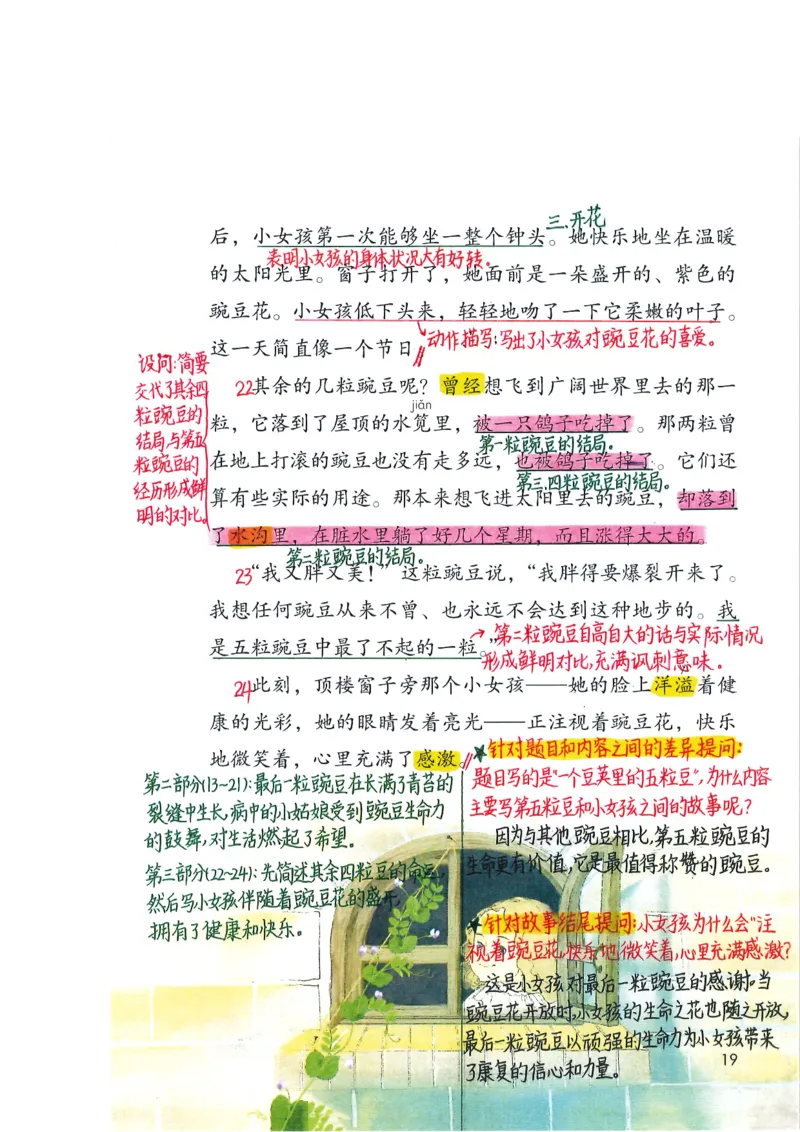 三.开花
后，小女孩第一次能够坐一整个钟头。她快乐地坐在温暖
表明小女孩的身体状况大有好转。
的太阳光里。窗子打开了，她面前是一朵盛开的、紫色的
豌豆花。小女孩低下头来，轻轻地吻了一下它柔嫩的叶子。
动作描写:写出了小女孩对豌豆花的喜爱。
这一天简直像一个节日
设问:简要
交代了其余四
粒豌豆的
结局与第五
粒豌豆的
经历形成鲜
明的对比。
22其余的几粒豌豆呢？曾经想飞到广阔世界里去的那一
jiǎn
粒，它落到了屋顶的水笕里，被一只鸽子吃掉了。那两粒曾
第一粒豌豆的结局。
在地上打滚的豌豆也没有走多远，也被鸽子吃掉了。它们还
第三.四粒豌豆的结局。
算有些实际的用途。那本来想飞进太阳里去的豌豆，却落到
了水沟里，在脏水里躺了好几个星期，而且涨得大大的。
第二粒豌豆的结局。
23“我又胖又美！”这粒豌豆说，“我胖得要爆裂开来了。
我想任何豌豆从来不曾、也永远不会达到这种地步的。我
是五粒豌豆中最了不起的一粒。”
→第二粒豌豆自高自大的话与实际情况
形成鲜明对比,充满讽刺意味。
24此刻，顶楼窗子旁那个小女孩——她的脸上洋溢着健
康的光彩，她的眼睛发着亮光——正注视着豌豆花，快乐
地微笑着，心里充满了感激。
第二部分(13~21):最后一粒豌豆在长满了青苔的
裂缝中生长,病中的小姑娘受到豌豆生命力
的鼓舞,对生活燃起了希望。
第三部分(22~24):先简述其余四粒豆的命运,
然后写小女孩伴随着豌豆花的盛开,
拥有了健康和快乐。
★针对题目和内容之间的差异提问:
题目写的是“一个豆荚里的五粒豆”,为什么内容
主要写第五粒豆和小女孩之间的故事呢?
因为与其他豌豆相比,第五粒豌豆的
生命更有价值,它是最值得称赞的豌豆。
★针对故事结尾提问:小女孩为什么会“注
视着豌豆花,快乐地微笑着,心里充满感激?
这是小女孩对最后一粒豌豆的感谢。当
豌豆花开放时,小女孩的生命之花也随之开放,
最后一粒豌豆以顽强的生命力为小女孩带来
了康复的信心和力量。
19